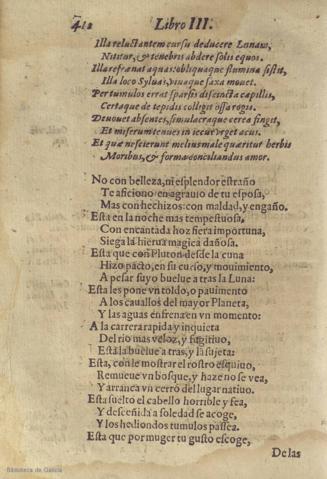 412 Libro III.
Illa reluctantem cursu deducere Lunam,
Nititur, & tenebris abdere solis equos.
Illa refrænat aquas: obliquaque flumina sistit,
Illa loco Syluas, viuaque saxa mouet.
Per tumulos errat sparsis discincta capillis,
Certaque de tepidis colligit ossa rogis.
Deuouet absentes, simulacraque cerea fingit,
Et miserum tenues in iecur vrget acus.
Et quæ nescierunt melius male quæritur herbis
Moribus, & forma conciliandus amor.
No con belleza, ni esplendor estraño
Te aficiono en agrauio de tu esposa,
Mas con hechizos: con maldad, y engaño.
Esta en la noche mas tempestuosa,
Con encantada hoz fiera importuna,
Siega la hierua magica dañosa.
Esta que con Pluton desde la cuna
Hizo pacto, en su curso, y mouimiento,
A pesar suyo buelue a tras la Luna:
Esta les pone vn toldo, o pauimento
A los cauallos del mayor Planeta,
Y las aguas enfrena en vn momento:
A la carrera rapida y inquieta
Del rio mas veloz, y fugitiuo,
Esta la buelue a tras, y la sujeta:
Esta, con le mostrar el rostro esquiuo,
Remueue vn bosque, y haze no se vea,
Y arranca vn cerro del lugar natiuo.
Esta suelto el cabello horrible y fea,
Y desceñida a soledad se acoge,
Y los hediondos tumulos passea.
Esta que por muger tu gusto escoge,
De las
Biblioteca de Galicia